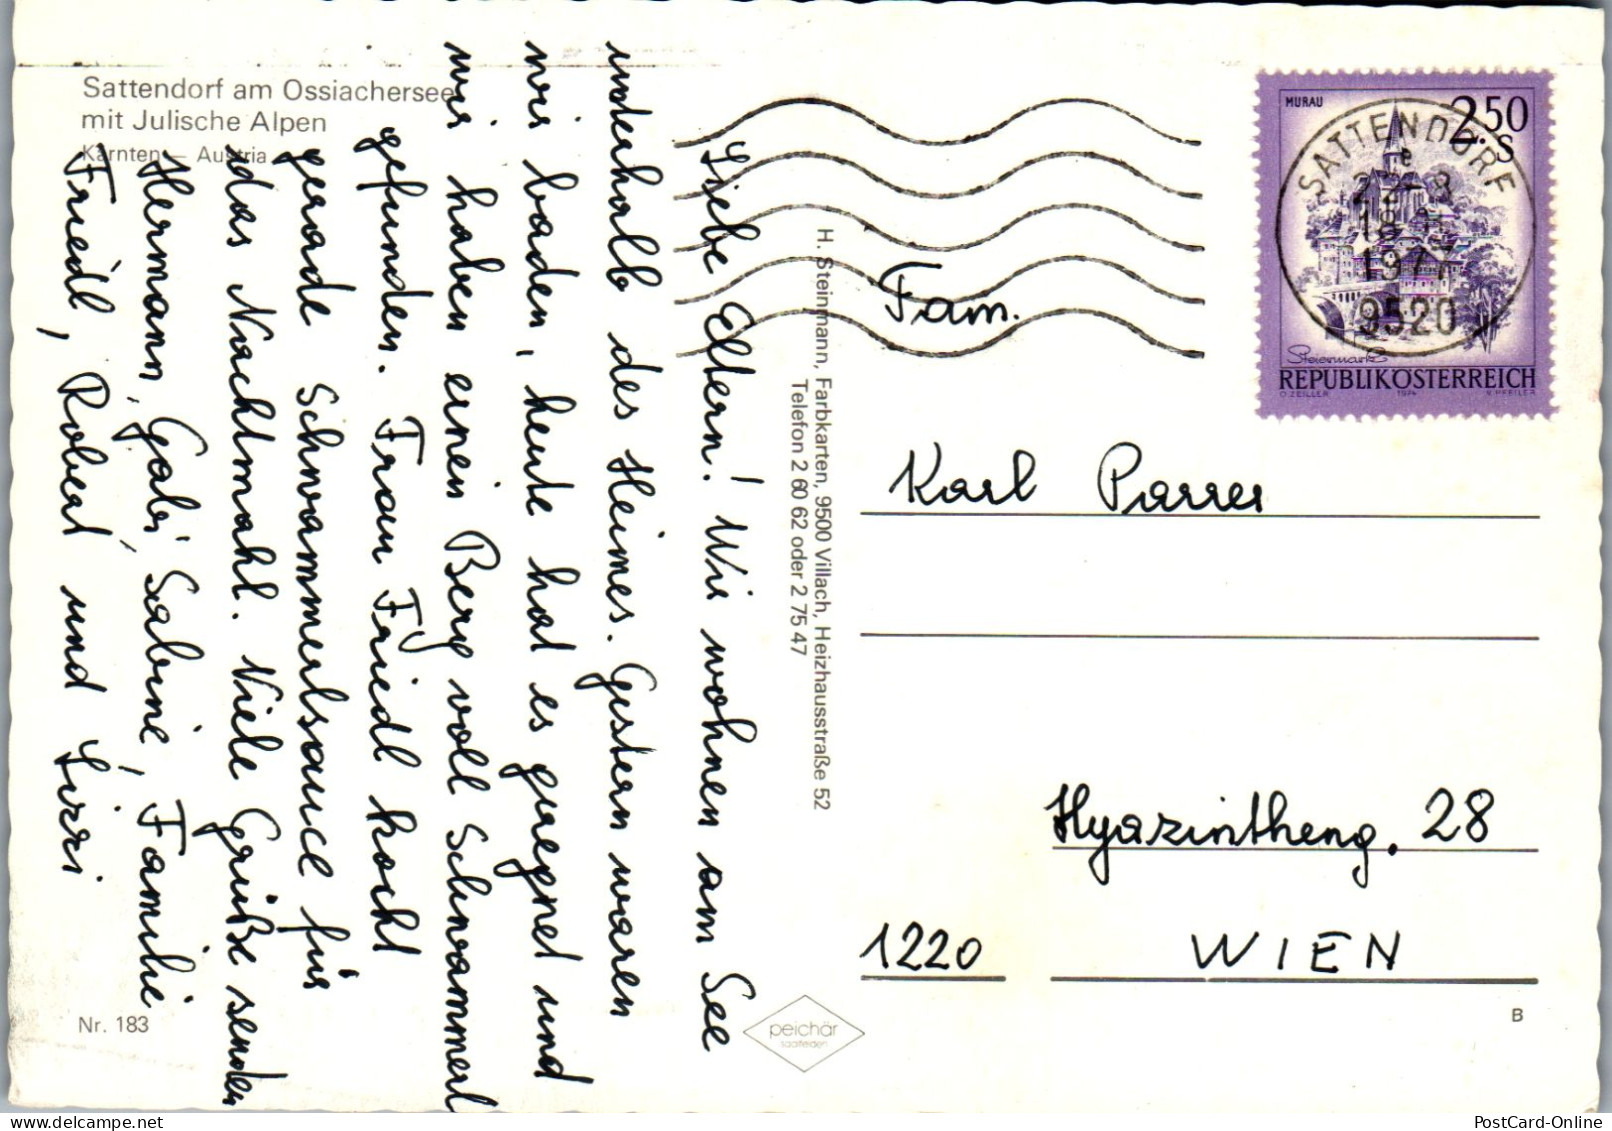 Sattendorf am Ossiachersee
mit Julische Alpen
Kärnten — Austria
Liebe Eltern! Wir wohnen am See
unterhalb des Heimes. Gestern waren
wir baden, heute hat es geregnet und
wir haben einen Berg voll Schwammerl
gefunden. Frau Friedl kocht
gerade Schwammerlsauce für
das Nachtmahl. Viele Grüße senden
Hermann, Gabi, Sabine, Familie
Friedl, Robert und Lizzi
Nr. 183
H. Steinmann, Farbkarten, 9500 Villach, Heizhausstraße 52
Telefon 2 60 62 oder 2 75 47
peichär
saalfelden
MURAU
2.50
S
Steiermark
REPUBLIK ÖSTERREICH
O. ZEILLER 1974
SATTENDORF
1977
9520
Fam.
Karl Parrer
Hyazintheng. 28
1220 WIEN
B
PostCard-Online